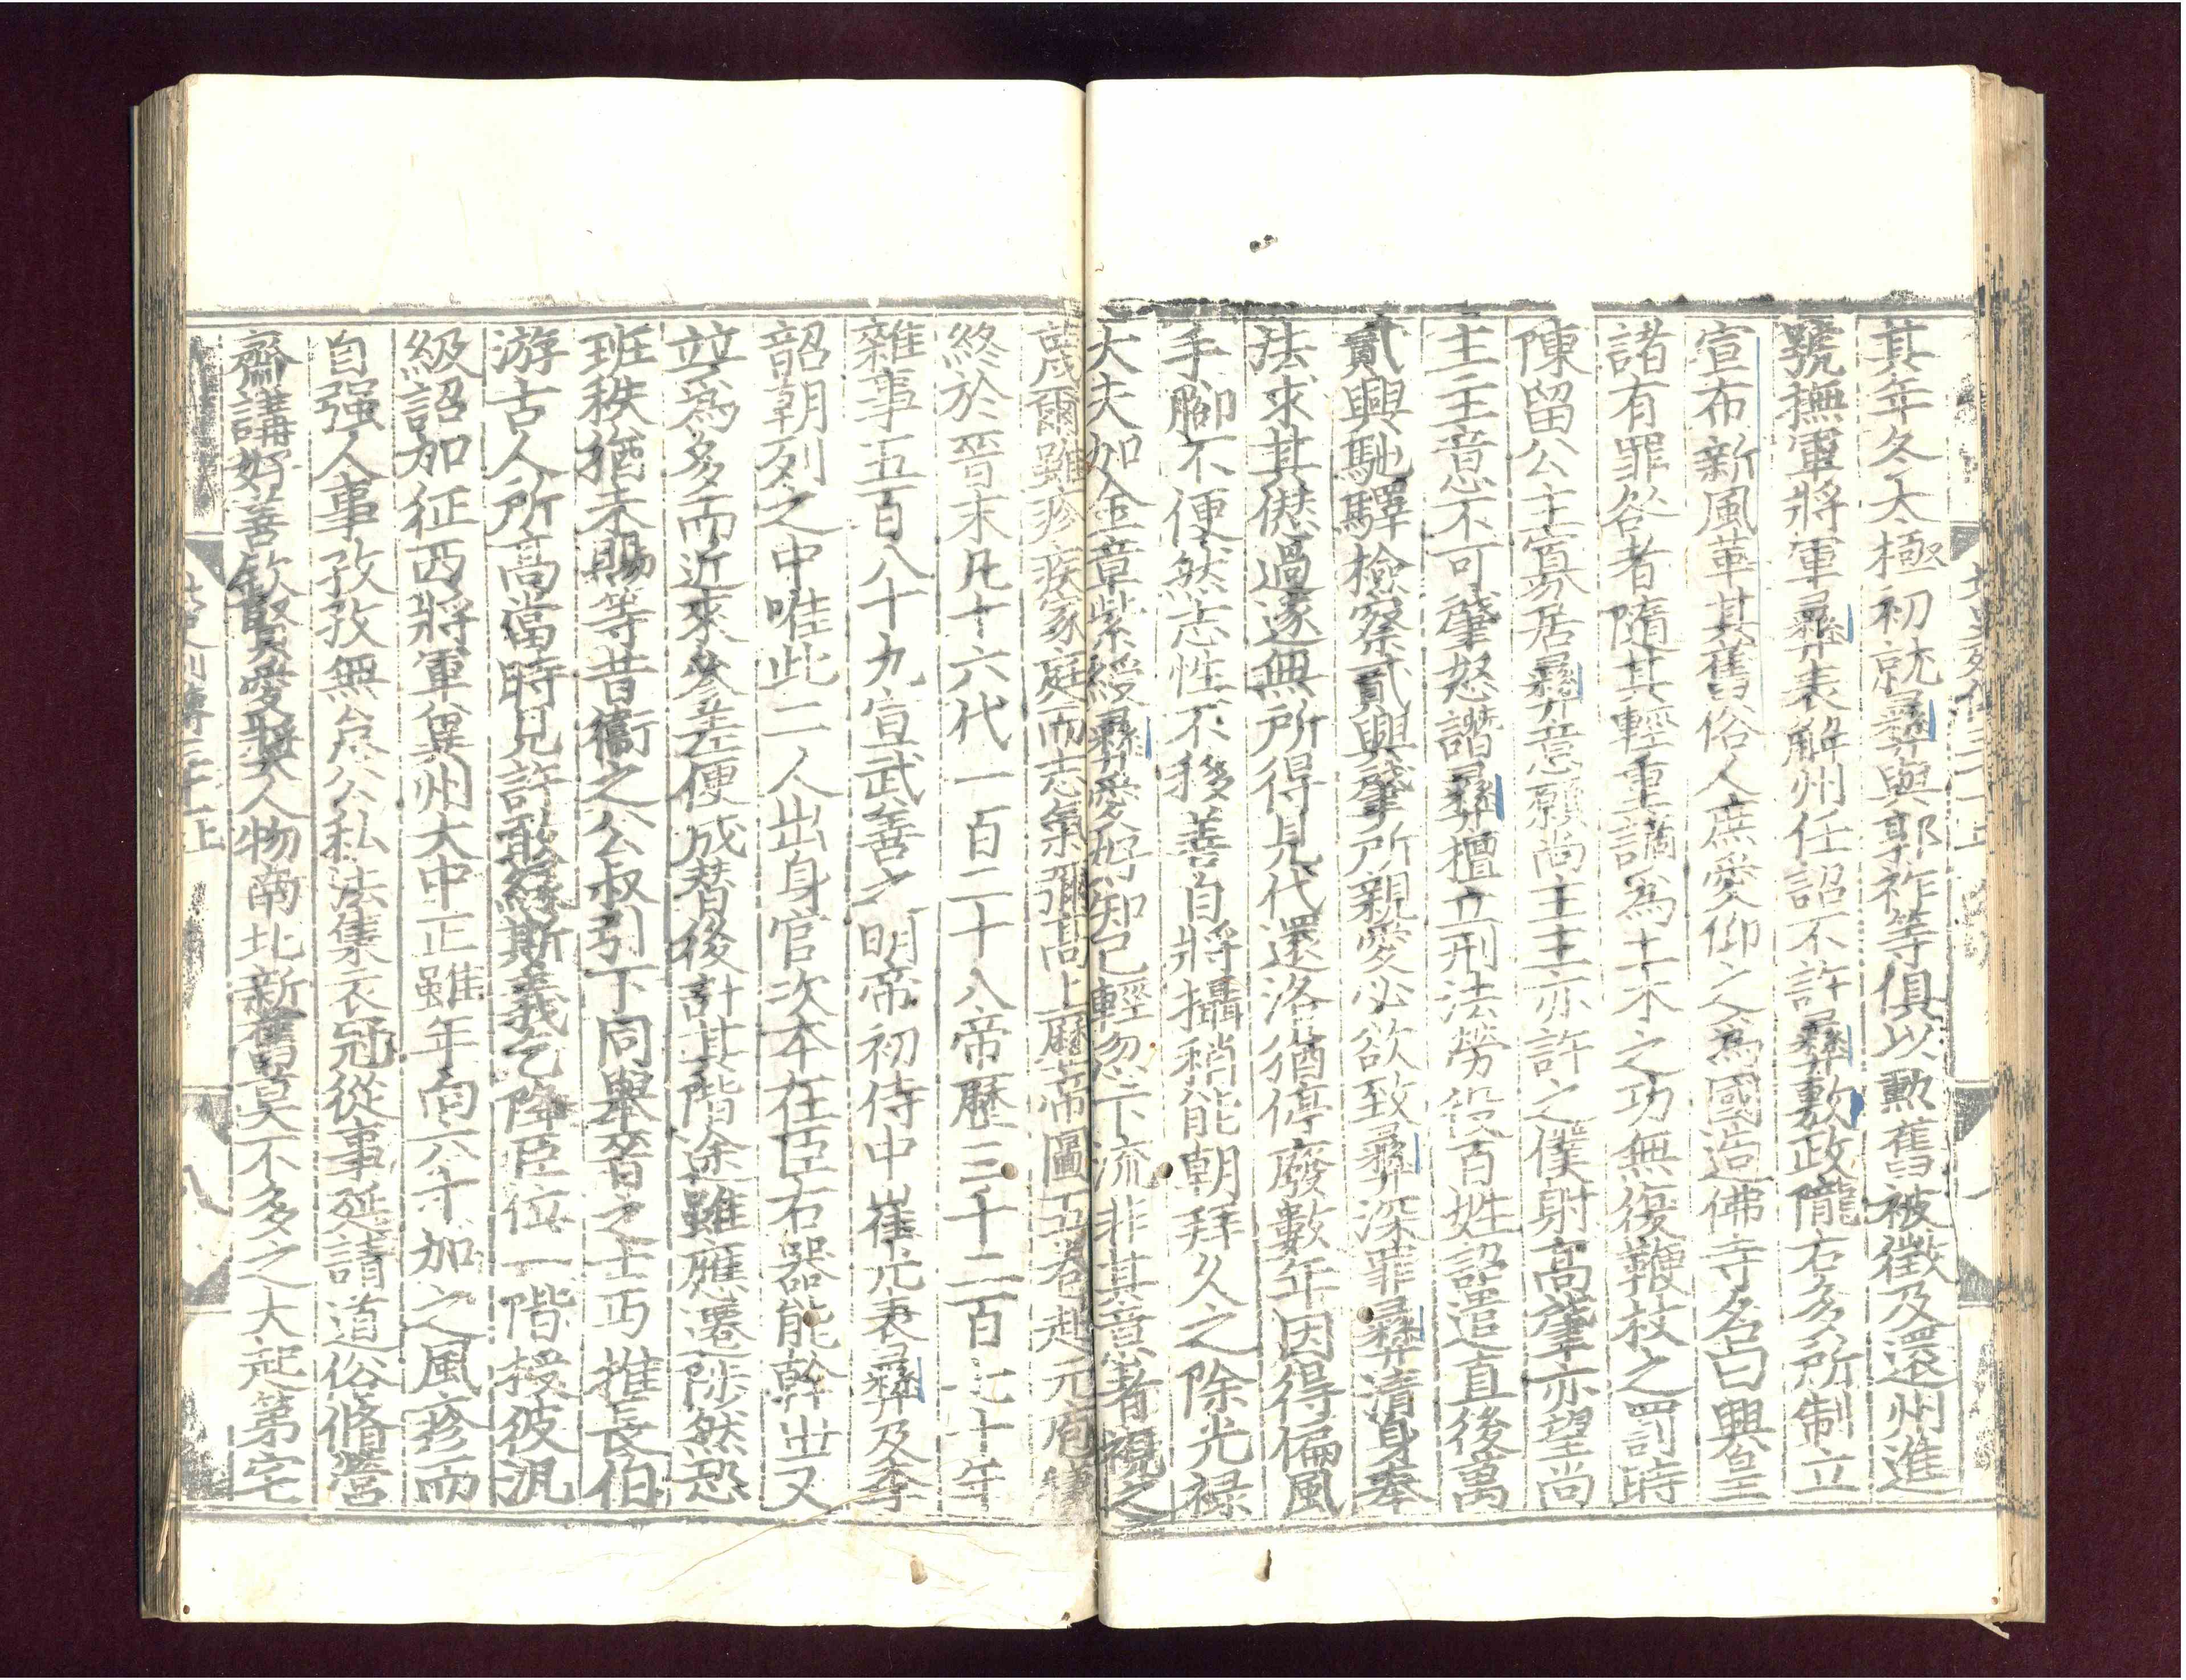 其年冬大極初就彝與郭祚等俱以勲舊被徵及還州進
號撫軍將軍彝表解州任詔不許彝敷政隴右多所制立
宣布新風革其舊俗人庶愛仰之人為國造佛寺名曰興皇
諸有罪咎者隨其輕重謫為土木之功無復鞭杖之罰時
陳留公主寡居彝意願尚主主亦許之僕射高肇亦望尚
主主意不可肇怒譖彝擅立刑法勞役百姓詔遣直後萬
貳興馳驛檢察貳興肇所親愛必欲致彝深罪彝清身奉
法求其愆過遂無所得見代還洛猶停廢數年因得偏風
手腳不便然志性不移善自將攝稍能朝拜久之除光禄
大夫如金章紫綬彝愛好知己輕忽下流非其意者視之
蔑爾雖疹疾家庭而志氣彌高上歷帝圖五卷起元庖犧
終於晉末凡十六代一百二十八帝歷三千二百七十年
雜事五百八十九宣武善之明帝初侍中崔光表彝及李
韶朝列之中唯此二人出身官次本在臣右器能幹世又
竝為多而近來參差便成替後計其階途雖應遷陟然恐
班秩猶未賜等昔衞之公叔引下同舉晉之士丐推長伯
游古人所高當時見許敢緣斯義乞降臣位一階授彼汎
級詔加征西將軍冀州大中正雖年向六十加之風疹而
自强人事孜孜無怠公私法集衣冠從事延請道俗脩營
齋講好善欽賢愛獎人物南北新舊莫不多之大起第宅